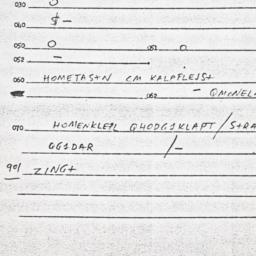 030 O
040 $ -
050 O 051 O
052 -
060 HOMETAS+N CM KALAFLEJS+
062 - QMINEL
070 HOMENKLEPL QHODGIKLAPT / S+RA
GGIDAR /-
901 ZING+